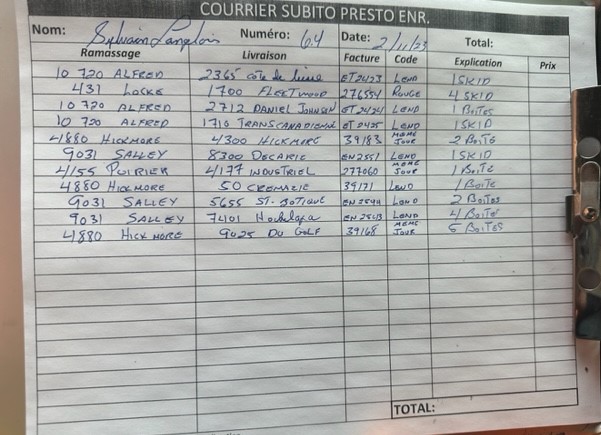 COURRIER SUBITO PRESTO ENR.
Nom: Sylvain Langlois Numéro: 64 Date: 2/11/23 Total:
Ramassage Livraison Facture Code Explication Prix
10 720 ALFRED 2365 côte de liesse ET2423 LEND 1 SKID
431 LOCKE 1700 FLEETWOOD 276554 ROUGE 4 SKID
10 720 ALFRED 2712 DANIEL JOHNSON ET 2424 LEND 1 BOITES
10 720 ALFRED 1710 TRANSCANADIENNE ET 2425 LEND 1 SKID
4880 HICKMORE 4300 HICKMORE 39183 MEME JOUR 2 BOITE
9031 SALLEY 8300 DECARIE EN2551 LEND 1 SKID
4155 POIRIER 4177 INDUSTRIEL 277060 MEME JOUR 1 BOITE
4880 HICKMORE 50 CREMAZIE 39171 LEND 1 BOITE
9031 SALLEY 5655 ST. EN 2544 LEND 2 BOITES
9031 SALLEY 7401 Hochelaga EN 2543 LEND 4 BOITE
4880 HICKMORE 9025 DU GOLF 39168 MEME JOUR 5 BOITES
TOTAL: